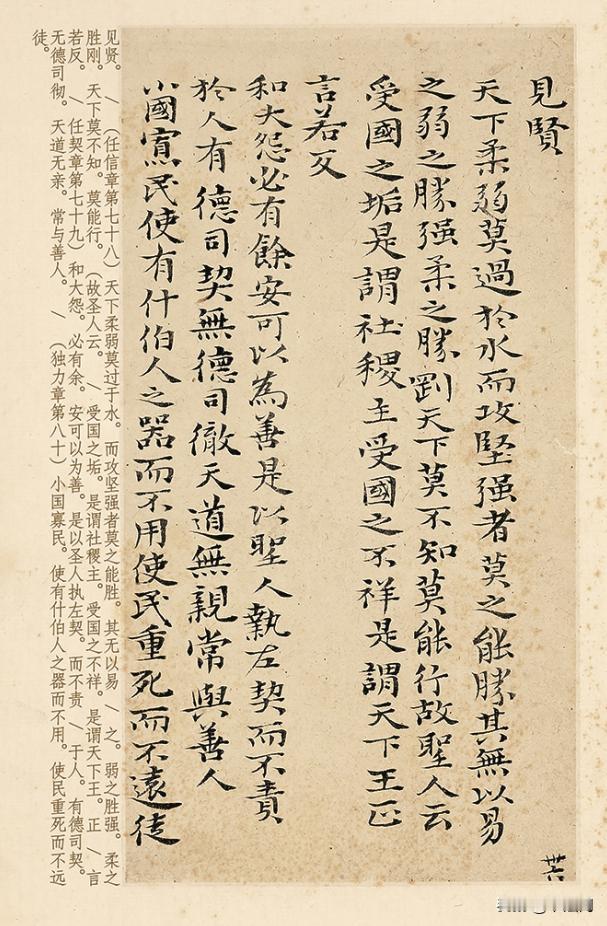 見賢
天下柔弱莫過於水而攻堅强者莫之能勝其無以易
之弱之勝强柔之勝剛天下莫不知莫能行故聖人云
受國之垢是謂社稷主受國之不祥是謂天下王正
言若反
和大怨必有餘安可以為善是以聖人執左契而不責
於人有德司契無德司徹天道無親常與善人
小國寡民使有什伯人之器而不用使民重死而不遠徒
见贤。 / (任信章第七十八) 天下柔弱莫过于水。而攻坚强者莫之能胜。其无以易 / 之。弱之胜强。柔之
胜刚。天下莫不知。莫能行。(故圣人云。 / 受国之垢。是谓社稷主。受国之不祥。是谓天下王。正 / 言
若反。 / (任契章第七十九) 和大怨。必有余。安可以为善。是以圣人执左契。而不责 / 于人。有德司契。
无德司彻。天道无亲。常与善人。 / (独力章第八十) 小国寡民。使有什伯人之器而不用。使民重死而不远
徒。